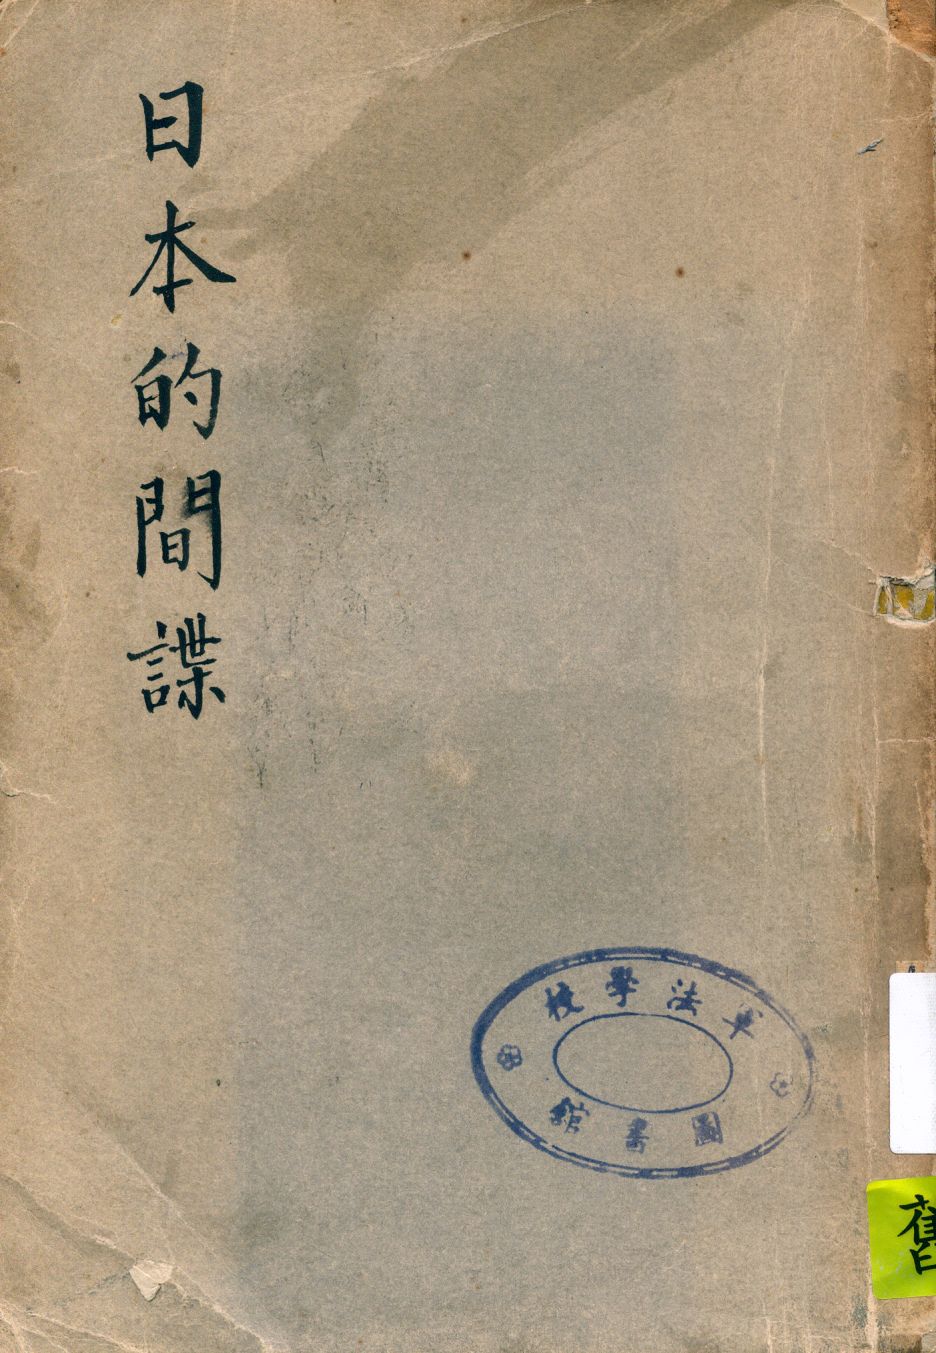 日本的間諜
軍法學校
圖書館
舊